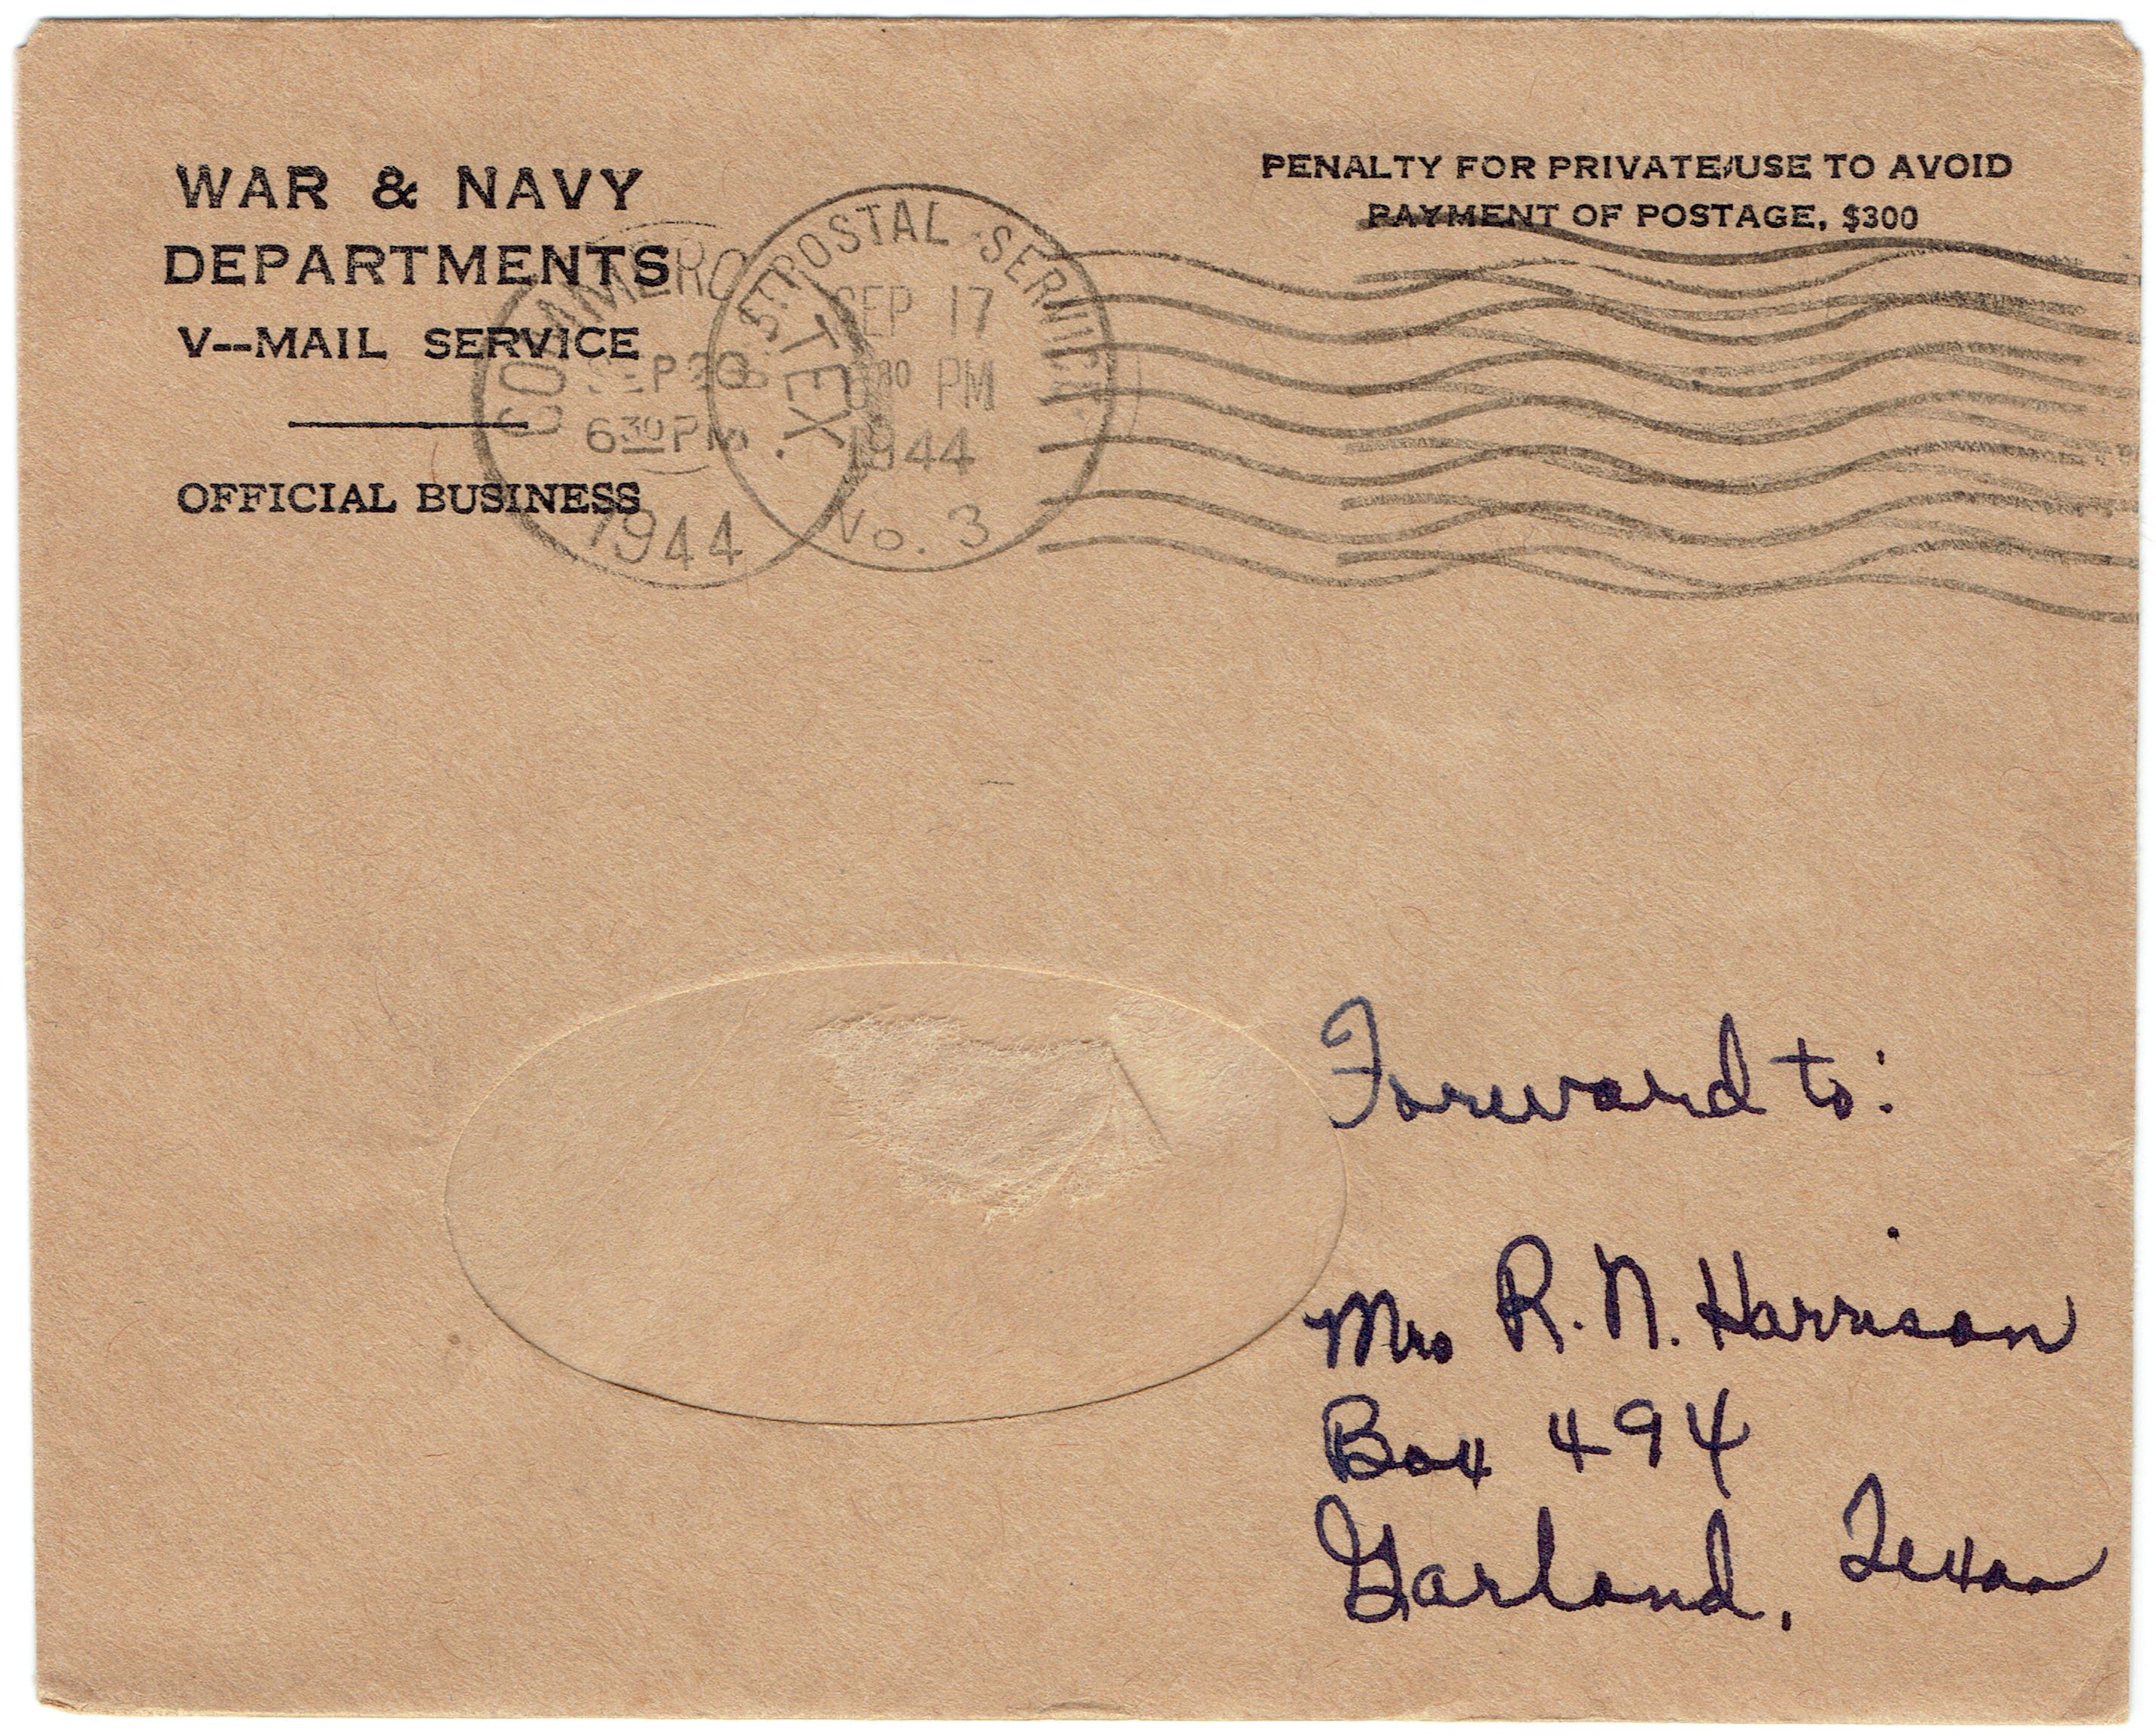 WAR & NAVY
DEPARTMENTS
V--MAIL SERVICE
OFFICIAL BUSINESS
COMMERC TEX.
SEP 20
6 30 PM
1944
U.S. POSTAL SERVICE
SEP 17
30 PM
1944
No. 3
PENALTY FOR PRIVATE USE TO AVOID
PAYMENT OF POSTAGE, $300
Forward to:
Mrs R. N. Harrison
Box 494
Garland, Texas